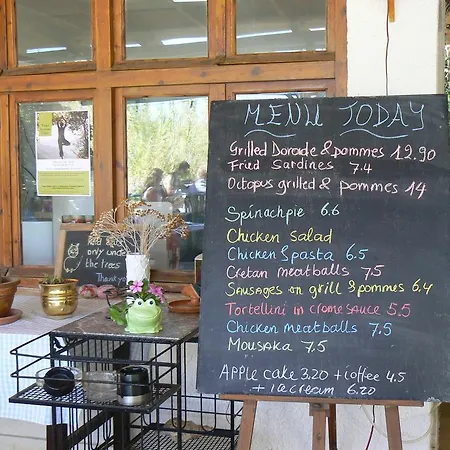 MENU TODAY
Grilled Dorade & pommes 12.90
Fried Sardines 7.4
Octopus grilled & pommes 14
Spinachpie 6.6
Chicken Salad
Chicken & pasta 6.5
Cretan meatballs 7.5
Sausages on grill & pommes 6.4
Tortellini in cromesauce 5.5
Chicken meatballs 7.5
Mousaka 7.5
Apple cake 3.20 + coffee 4.5
+ icecream 6.20
only under
the trees
Thank you